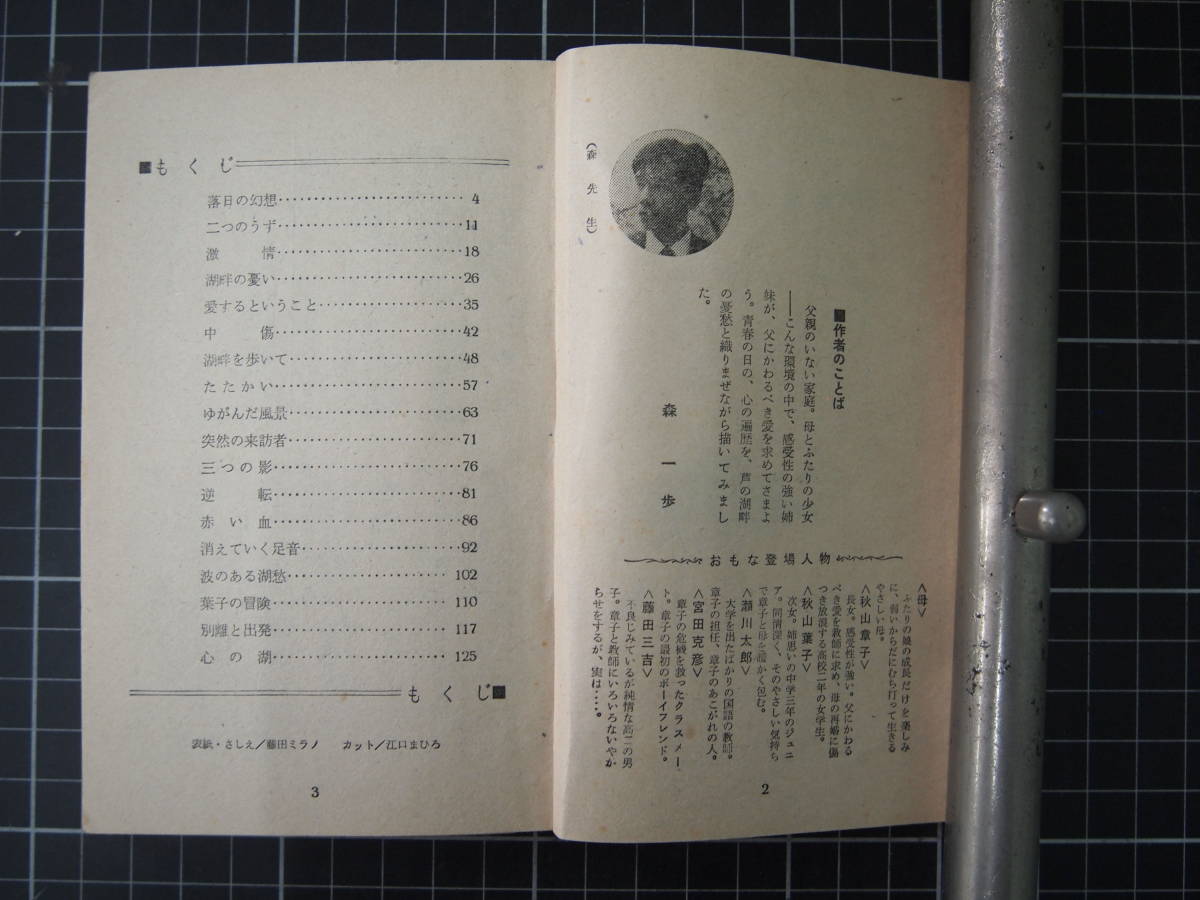 （森先生）
■作者のことば
父親のいない家庭。母とふたりの少女
――こんな環境の中で、感受性の強い姉
妹が、父にかわるべき愛を求めてさまよ
う。青春の日の、心の遍歴を、芦の湖畔
の憂愁と織りまぜながら描いてみまし
た。
森一歩
おもな登場人物
＜母＞
ふたりの娘の成長だけを楽しみ
に、弱いからだにむち打って生きる
やさしい母。
＜秋山章子＞
長女。感受性が強い。父にかわる
べき愛を教師に求め、母の再婚に傷
つき放浪する高校二年の女学生。
＜秋山葉子＞
次女。姉思いの中学三年のジュニ
ア。同情深く、そのやさしい気持ち
で章子と母を温かく包む。
＜瀬川太郎＞
大学を出たばかりの国語の教師。
章子の担任、章子のあこがれの人。
＜宮田克彦＞
章子の危機を救ったクラスメー
ト。章子の最初のボーイフレンド。
＜藤田三吉＞
不良じみているが純情な高二の男
子。章子と教師にいろいろないやが
らせをするが、実は……。
2
■もくじ
落日の幻想……………………4
二つのうず……………………11
激情……………………18
湖畔の憂い……………………26
愛するということ……………………35
中傷……………………42
湖畔を歩いて……………………48
たたかい……………………57
ゆがんだ風景……………………63
突然の来訪者……………………71
三つの影……………………76
逆転……………………81
赤い血……………………86
消えていく足音……………………92
波のある湖愁……………………102
葉子の冒険……………………110
別離と出発……………………117
心の湖……………………125
もくじ■
表紙・さしえ／藤田ミラノ　カット／江口まひろ
3